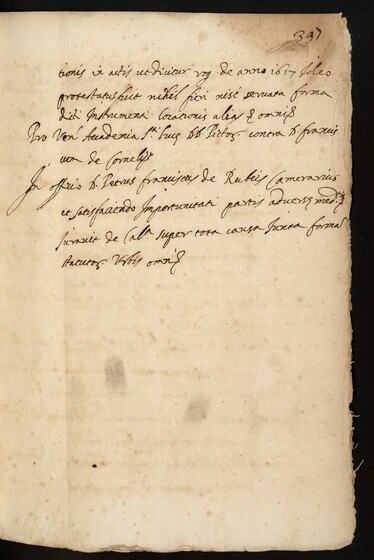 337
tionis in actis ut dicitur rog. de anno 1617 Ideo
protestatus fuit nihil fieri nisi servata forma
dicti Instrumenti locationis alias omni
Pro Ven. Academia Sti. Luce DD Pictor. contra D. Francis
cum de Cornelijs
In offitio D. Petrus Franciscus de Rubeis Camerarius
et satisfaciendo Importunitati partis adverse med.
Iuravit de Cala. super tota causa Iuxta formam
statutor. Urbis omni